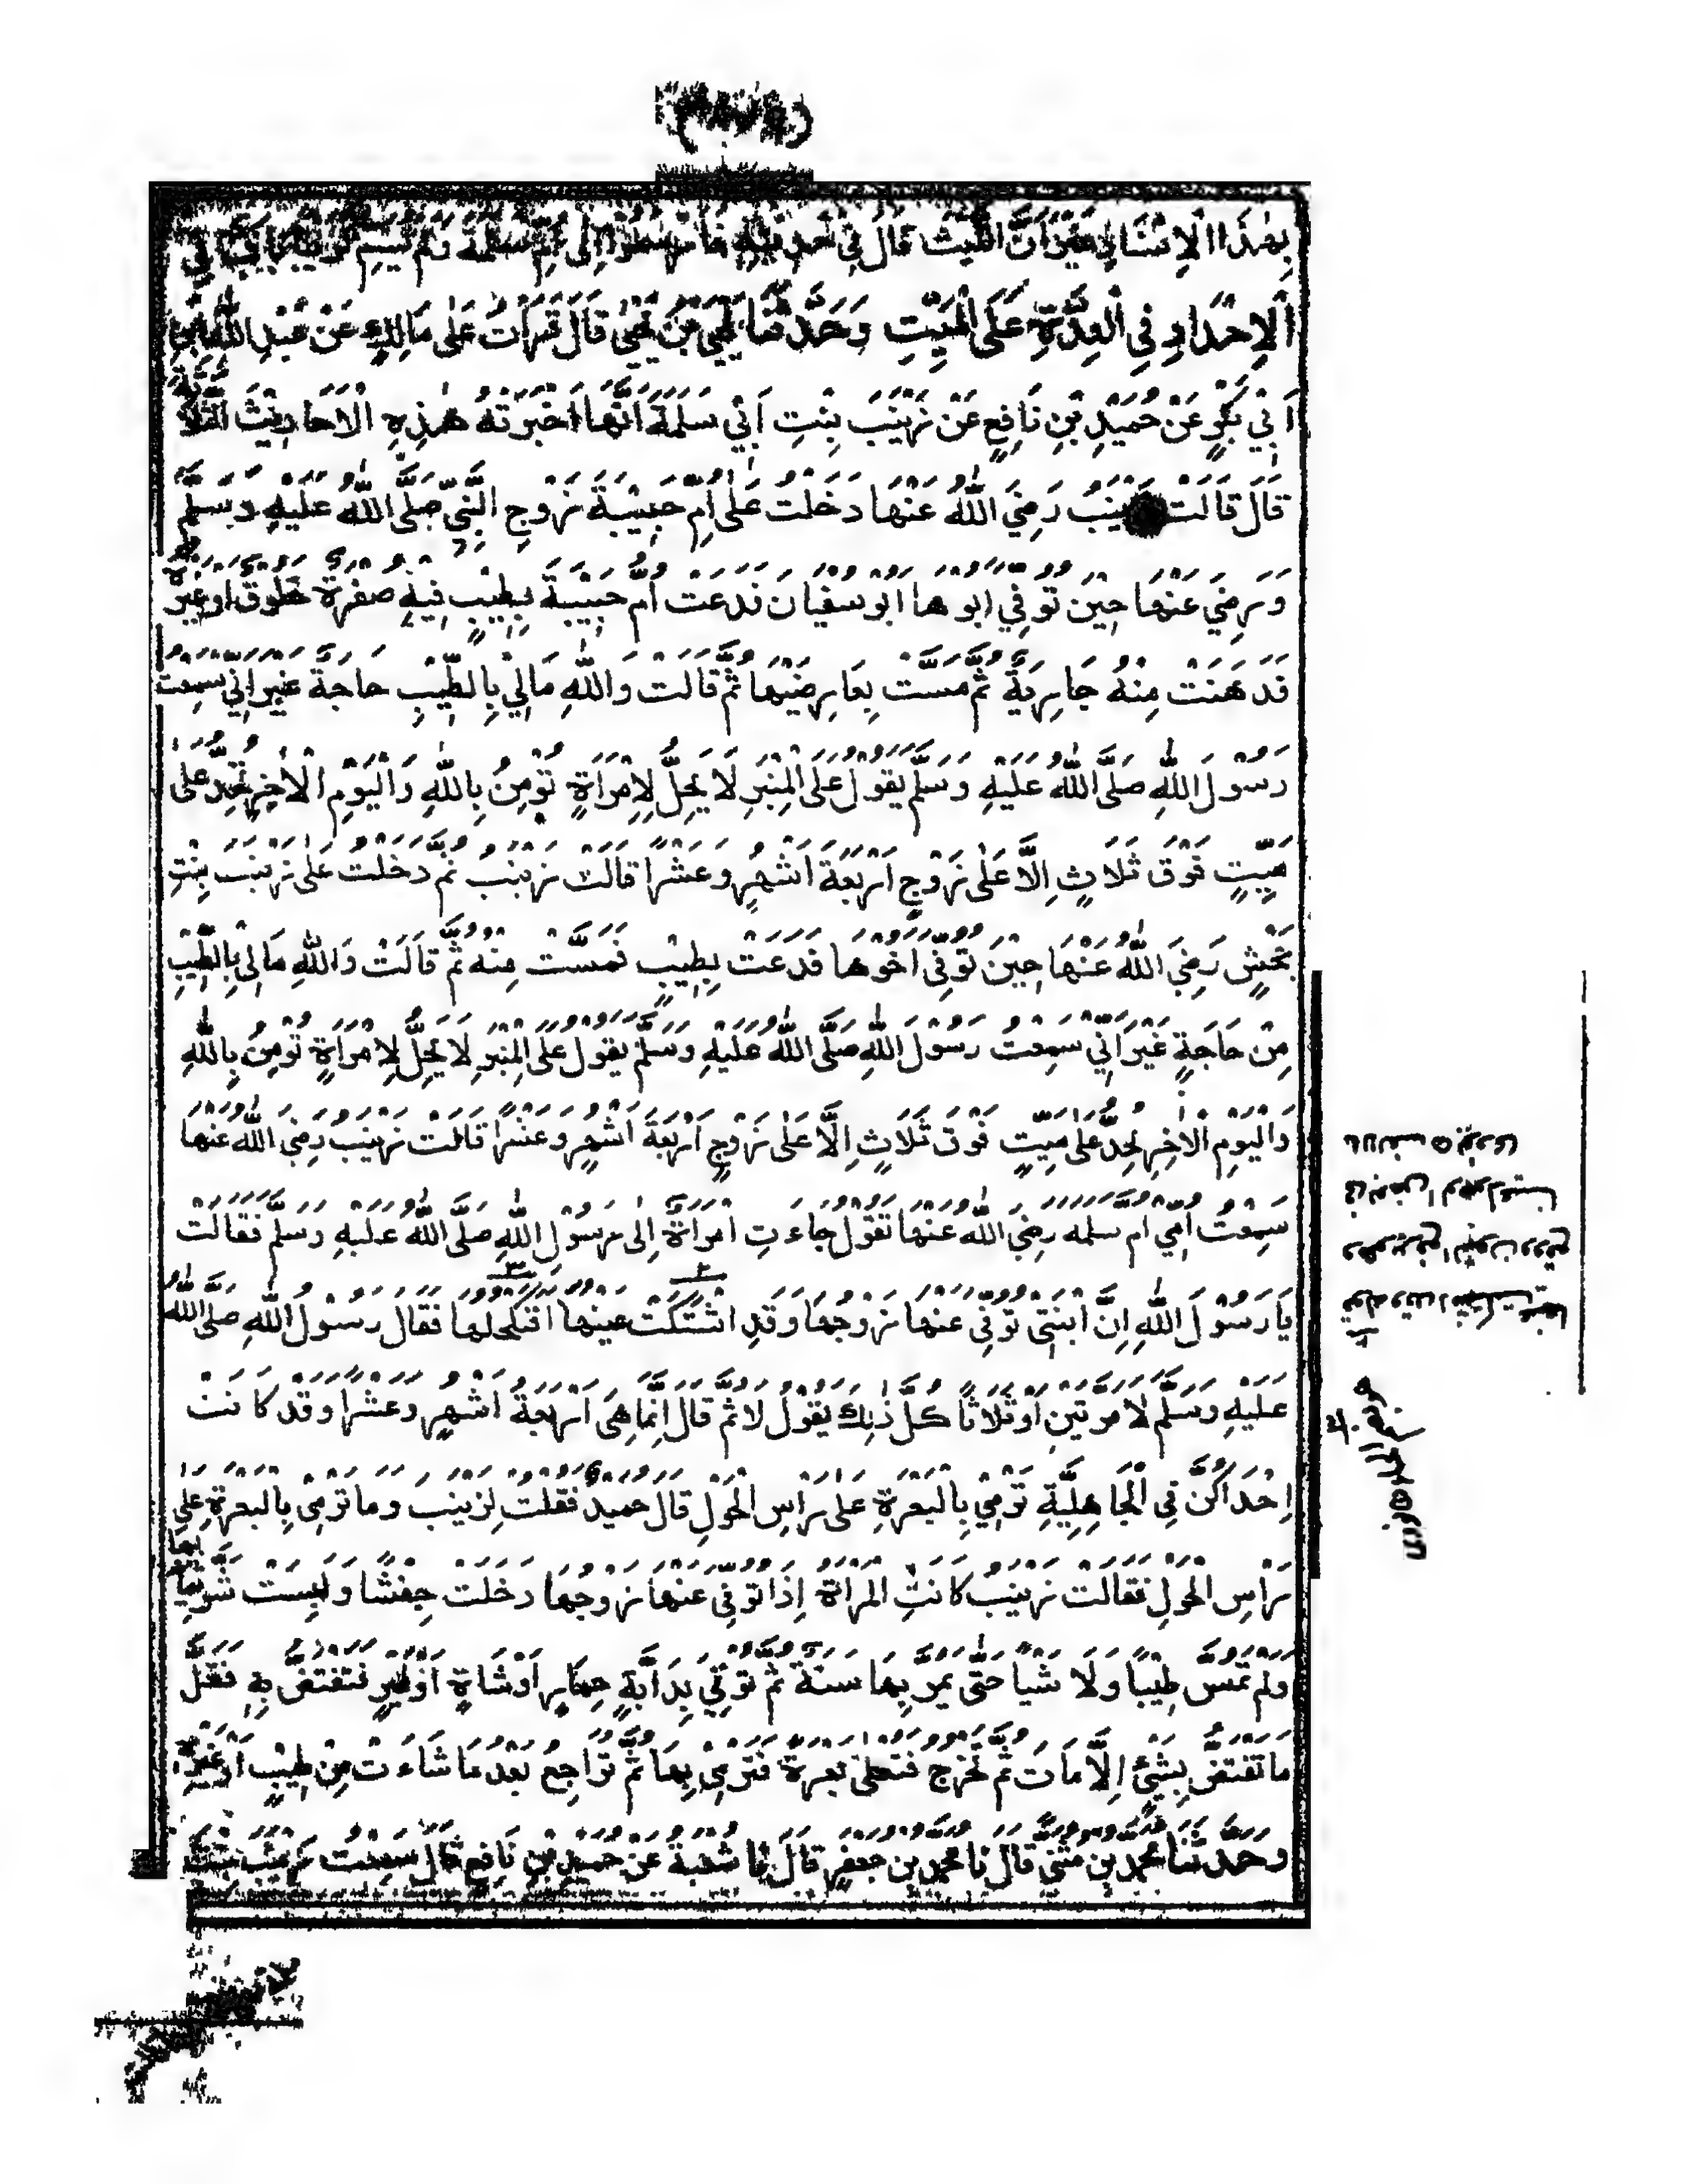 بِهٰذَا الْاِسْنَادِ غَيْرَ اَنَّ اللَّيْثَ قَالَ فِي حَدِيْثِهِ فَاَرْسَلُوْا اِلٰى اُمِّ سَلَمَةَ وَلَمْ يُسَمِّ كُرَيْبًا بَابٌ فِي
الْاِحْدَادِ فِي الْعِدَّةِ عَلَى الْمَيِّتِ وَحَدَّثَنَا يَحْيَى بْنُ يَحْيٰى قَالَ قَرَأْتُ عَلٰى مَالِكٍ عَنْ عَبْدِ اللّٰهِ بْنِ
اَبِيْ بَكْرٍ عَنْ حُمَيْدِ بْنِ نَافِعٍ عَنْ زَيْنَبَ بِنْتِ اَبِيْ سَلَمَةَ اَنَّهَا اَخْبَرَتْهُ هٰذِهِ الْاَحَادِيْثَ الثَّلَاثَةَ
قَالَ قَالَتْ زَيْنَبُ رَضِيَ اللّٰهُ عَنْهَا دَخَلْتُ عَلٰى اُمِّ حَبِيْبَةَ زَوْجِ النَّبِيِّ صَلَّى اللّٰهُ عَلَيْهِ وَسَلَّمَ
وَرَضِيَ عَنْهَا حِيْنَ تُوُفِّيَ اَبُوْهَا اَبُوْ سُفْيَانَ فَدَعَتْ اُمُّ حَبِيْبَةَ بِطِيْبٍ فِيْهِ صُفْرَةٌ خَلُوْقٌ اَوْ غَيْرُهُ
فَدَهَنَتْ مِنْهُ جَارِيَةً ثُمَّ مَسَّتْ بِعَارِضَيْهَا ثُمَّ قَالَتْ وَاللّٰهِ مَالِيْ بِالطِّيْبِ حَاجَةٌ غَيْرَ اَنِّيْ سَمِعْتُ
رَسُوْلَ اللّٰهِ صَلَّى اللّٰهُ عَلَيْهِ وَسَلَّمَ يَقُوْلُ عَلَى الْمِنْبَرِ لَا يَحِلُّ لِامْرَاَةٍ تُؤْمِنُ بِاللّٰهِ وَالْيَوْمِ الْاٰخِرِ تُحِدُّ عَلٰى
مَيِّتٍ فَوْقَ ثَلَاثٍ اِلَّا عَلٰى زَوْجٍ اَرْبَعَةَ اَشْهُرٍ وَعَشْرًا قَالَتْ زَيْنَبُ ثُمَّ دَخَلْتُ عَلٰى زَيْنَبَ بِنْتِ
جَحْشٍ رَضِيَ اللّٰهُ عَنْهَا حِيْنَ تُوُفِّيَ اَخُوْهَا فَدَعَتْ بِطِيْبٍ فَمَسَّتْ مِنْهُ ثُمَّ قَالَتْ وَاللّٰهِ مَالِيْ بِالطِّيْبِ
مِنْ حَاجَةٍ غَيْرَ اَنِّيْ سَمِعْتُ رَسُوْلَ اللّٰهِ صَلَّى اللّٰهُ عَلَيْهِ وَسَلَّمَ يَقُوْلُ عَلَى الْمِنْبَرِ لَا يَحِلُّ لِامْرَاَةٍ تُؤْمِنُ بِاللّٰهِ
وَالْيَوْمِ الْاٰخِرِ تُحِدُّ عَلٰى مَيِّتٍ فَوْقَ ثَلَاثٍ اِلَّا عَلٰى زَوْجٍ اَرْبَعَةَ اَشْهُرٍ وَعَشْرًا قَالَتْ زَيْنَبُ رَضِيَ اللّٰهُ عَنْهَا
سَمِعْتُ اُمِّيْ اُمَّ سَلَمَةَ رَضِيَ اللّٰهُ عَنْهَا تَقُوْلُ جَاءَتِ امْرَاَةٌ اِلٰى رَسُوْلِ اللّٰهِ صَلَّى اللّٰهُ عَلَيْهِ وَسَلَّمَ فَقَالَتْ
يَا رَسُوْلَ اللّٰهِ اِنَّ ابْنَتِيْ تُوُفِّيَ عَنْهَا زَوْجُهَا وَقَدِ اشْتَكَتْ عَيْنُهَا اَفَنَكْحُلُهَا فَقَالَ رَسُوْلُ اللّٰهِ صَلَّى اللّٰهُ
عَلَيْهِ وَسَلَّمَ لَا مَرَّتَيْنِ اَوْ ثَلَاثًا كُلَّ ذٰلِكَ يَقُوْلُ لَا ثُمَّ قَالَ اِنَّمَا هِيَ اَرْبَعَةُ اَشْهُرٍ وَعَشْرًا وَقَدْ كَانَتْ
اِحْدَاكُنَّ فِي الْجَاهِلِيَّةِ تَرْمِيْ بِالْبَعْرَةِ عَلٰى رَاْسِ الْحَوْلِ قَالَ حُمَيْدٌ فَقُلْتُ لِزَيْنَبَ وَمَا تَرْمِيْ بِالْبَعْرَةِ عَلٰى
رَاْسِ الْحَوْلِ فَقَالَتْ زَيْنَبُ كَانَتِ الْمَرْاَةُ اِذَا تُوُفِّيَ عَنْهَا زَوْجُهَا دَخَلَتْ حِفْشًا وَلَبِسَتْ شَرَّ ثِيَابِهَا
وَلَمْ تَمَسَّ طِيْبًا وَلَا شَيْاً حَتّٰى يَمُرَّ بِهَا سَنَةٌ ثُمَّ تُؤْتٰى بِدَابَّةٍ حِمَارٍ اَوْ شَاةٍ اَوْ طَيْرٍ فَتَفْتَضُّ بِهِ فَقَلَّ
مَا تَفْتَضُّ بِشَيْئٍ اِلَّا مَاتَ ثُمَّ تَخْرُجُ فَتُعْطٰى بَعْرَةً فَتَرْمِيْ بِهَا ثُمَّ تُرَاجِعُ بَعْدُ مَا شَاءَتْ مِنْ طِيْبٍ اَوْ غَيْرِهِ
وَحَدَّثَنَا مُحَمَّدُ بْنُ مُثَنّٰى قَالَ نَا مُحَمَّدُ بْنُ جَعْفَرٍ قَالَ نَا شُعْبَةُ عَنْ حُمَيْدِ بْنِ نَافِعٍ قَالَ سَمِعْتُ زَيْنَبَ بِنْتَ